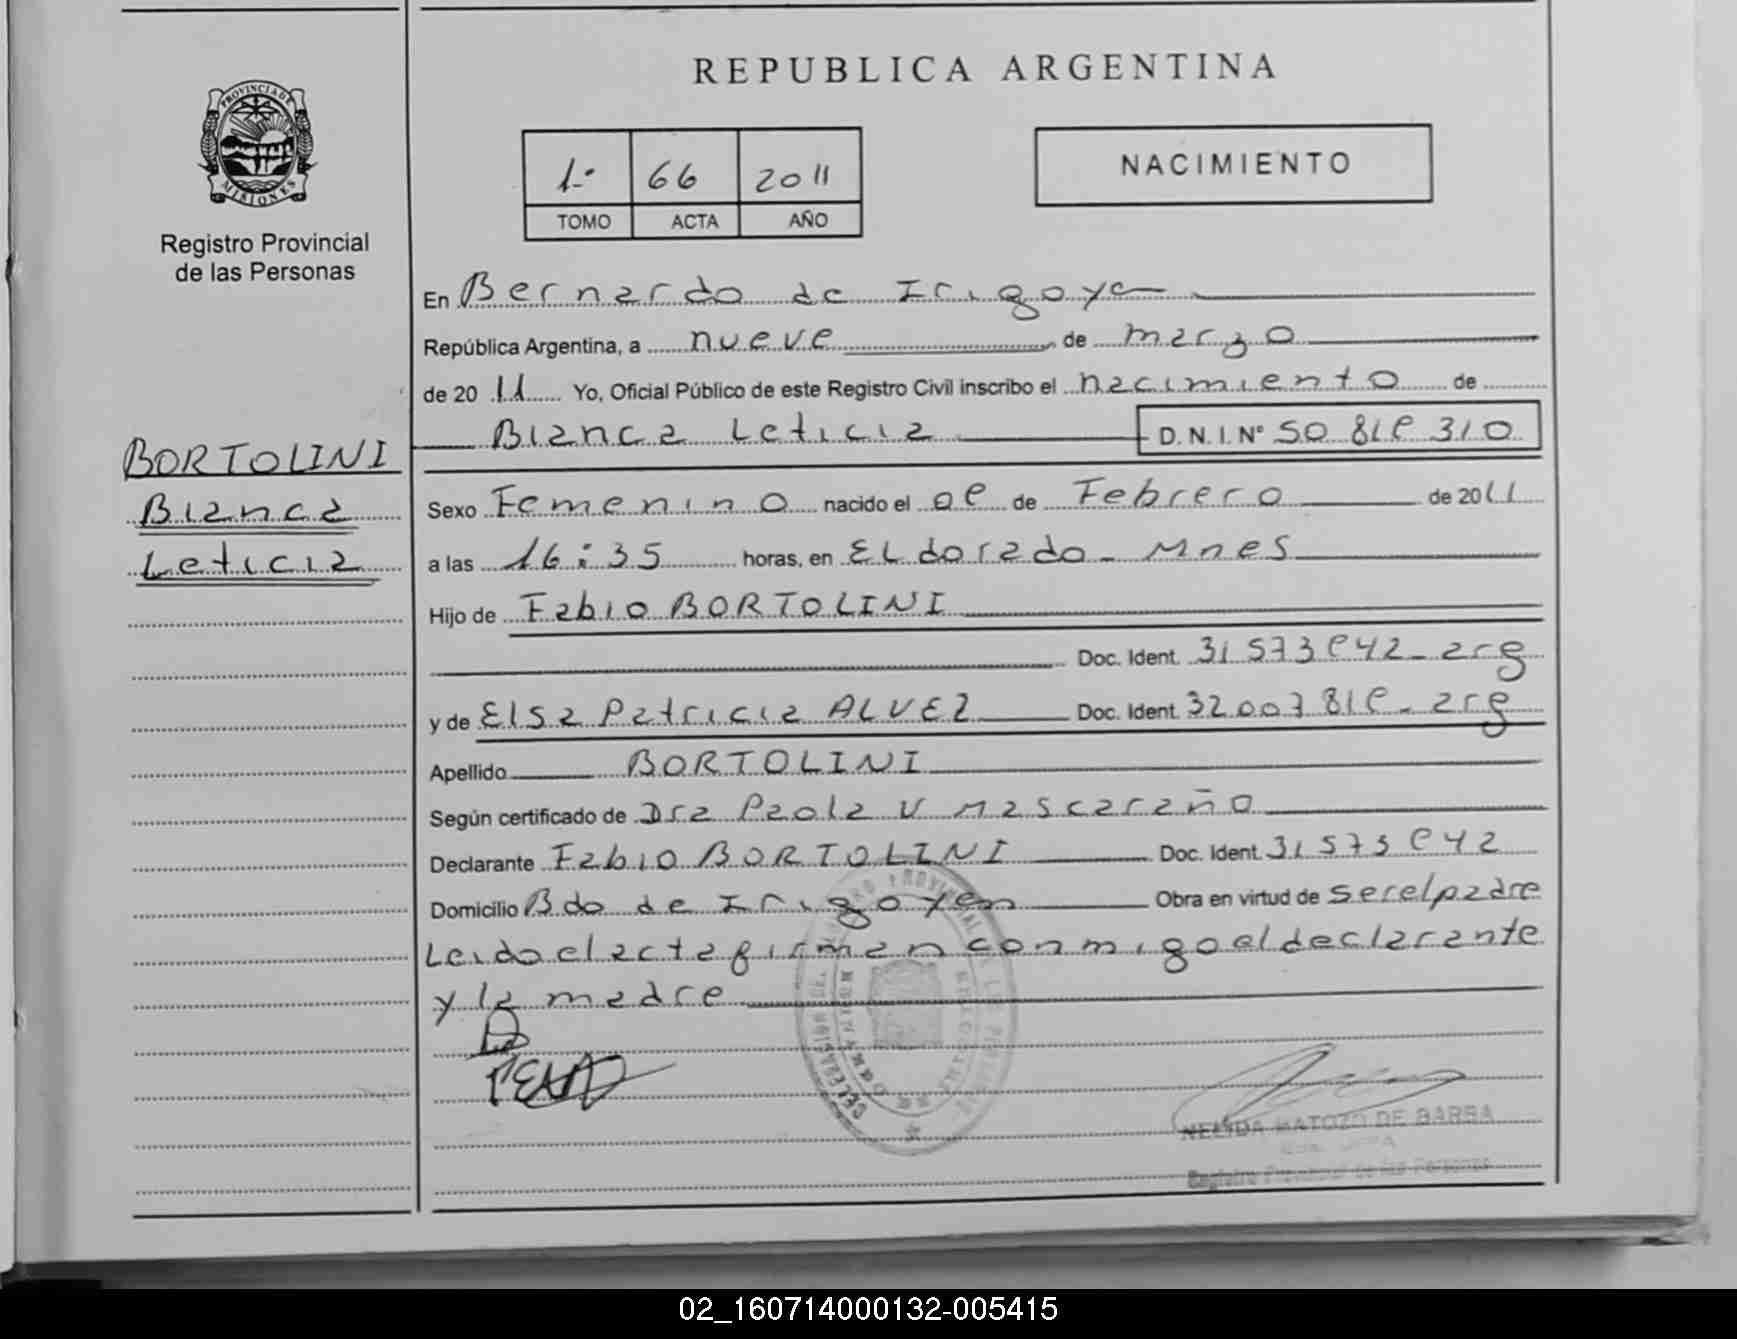 REPUBLICA ARGENTINA
PROVINCIA DE
MISIONES
Registro Provincial
de las Personas
1º 66 2011
TOMO ACTA AÑO
NACIMIENTO
En Bernardo de Irigoyen
República Argentina, a nueve de marzo
de 20 11 Yo, Oficial Público de este Registro Civil inscribo el nacimiento de
Bianca Leticia D. N. I. Nº 50 819 310
BORTOLINI
Bianca
Leticia
Sexo Femenino nacido el 09 de Febrero de 2011
a las 16:35 horas, en ELdorado - Mnes
Hijo de Fabio BORTOLINI
Doc. Ident. 31573942 - arg
y de Elsa Patricia ALVEZ Doc. Ident. 32007819 - arg
Apellido BORTOLINI
Según certificado de Dra Paola V Mascaraño
Declarante Fabio BORTOLINI Doc. Ident. 31573942
Domicilio Bdo de Irigoyen Obra en virtud de ser el padre
Leido el acta firman conmigo el declarante
y la madre
NELIDA MATOZO DE BARBA
Registro Provincial de las Personas
02_160714000132-005415